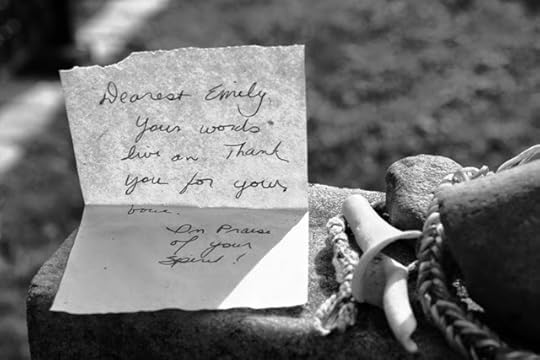 Dearest Emily,
Your words
live on Thank
you for your
In Praise
of your
Spirit!